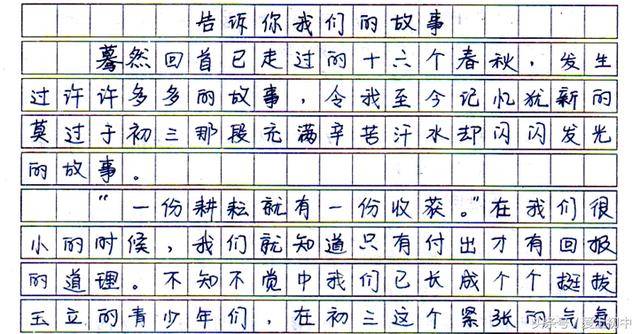 告诉你我们的故事
蓦然回首已走过的十六个春秋，发生
过许许多多的故事，令我至今记忆犹新的
莫过于初三那段充满辛苦汗水却闪闪发光
的故事。
“一份耕耘就有一份收获。”在我们很
小的时候，我们就知道只有付出才有回报
的道理。不知不觉中我们已长成个个挺拔
玉立的青少年们，在初三这个紧张的气